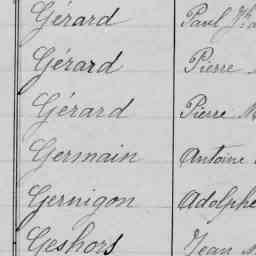 Gérard Paul
Gérard Pierre
Gérard Pierre
Germain Antoine
Gernigon Adolphe
Geshors Jean